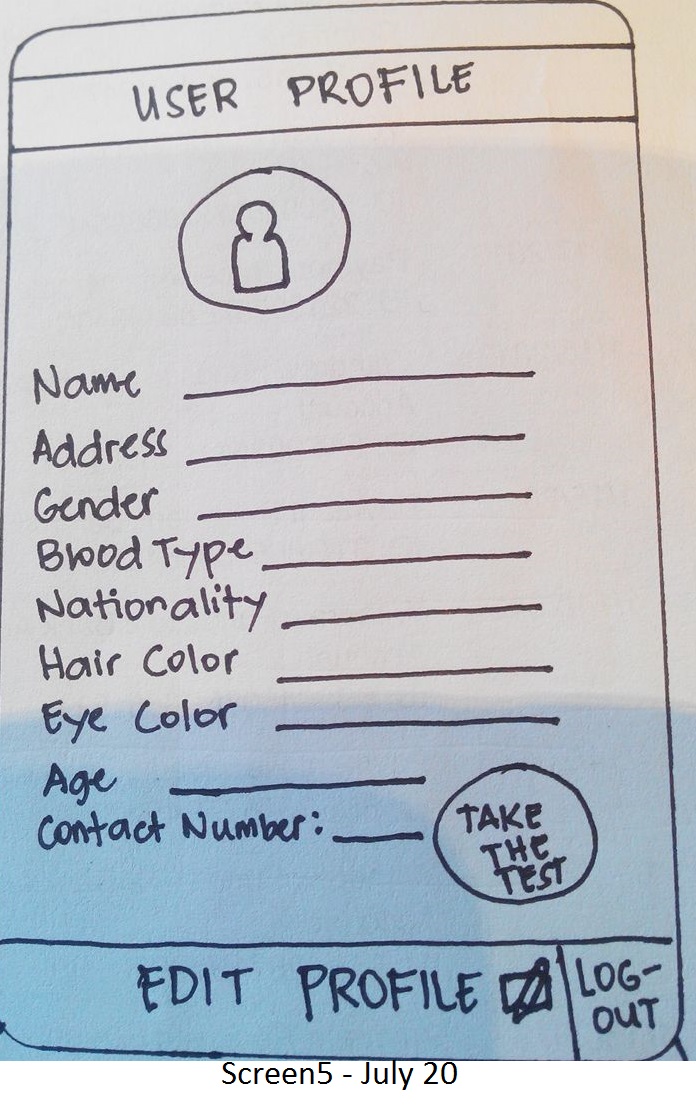 USER PROFILE
Name
Address
Gender
Blood Type
Nationality
Hair Color
Eye Color
Age
Contact Number:
TAKE
THE
TEST
EDIT PROFILE
LOG-
OUT
Screen5 - July 20